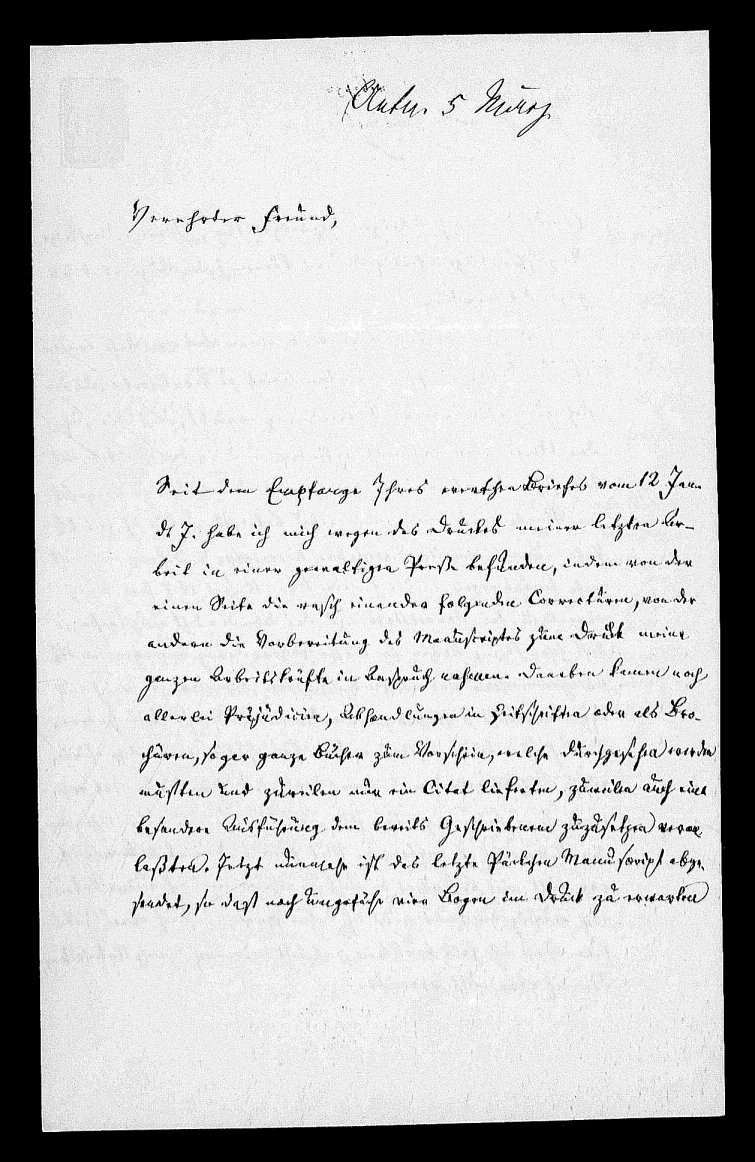 5 März
Verehrter Freund,
Seit dem Empfange Ihres werthen Briefes vom 12 Jan
ds J. habe ich mich wegen des Druckes meiner letzten Ar-
beit in einer gewaltigen Presse befunden, indem von der
einen Seite die rasch einander folgenden Correcturen, von der
andern die Vorbereitung des Manuscriptes zum Druck meine
ganzen Arbeitskräfte in Anspruch nahmen. Daneben kamen noch
allerlei Präjudicien, Abhandlungen in Zeitschriften oder als Bro-
chüren, sogar ganze Bücher zum Vorschein, welche durchgesehen werden
mußten und zuweilen nur ein Citat lieferten, zuweilen auch eine
besondere Ausführung dem bereits Geschriebenen zuzusetzen veran
laßten. Jetzt nunmehr ist das letzte Päckchen Manuscript abge
sendet, so daß noch ungefähr vier Bogen im Druck zu erwarten